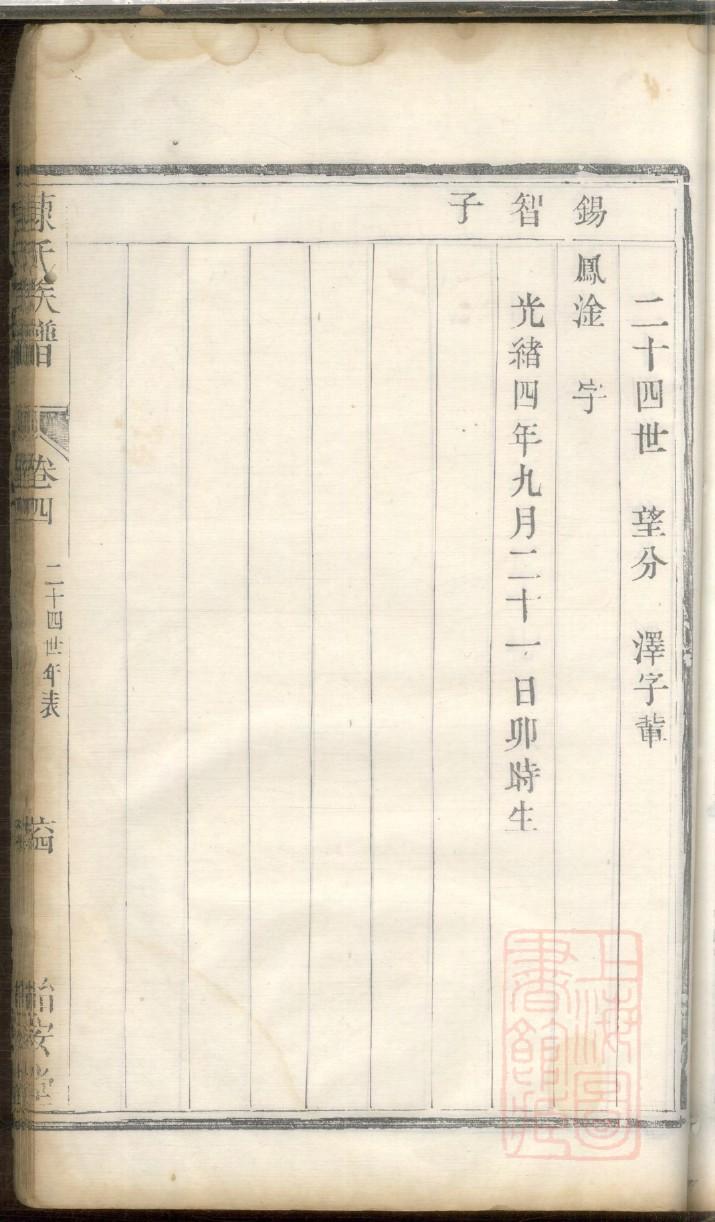 二十四世　望分　澤字輩
錫　鳳淦　字
智　光緒四年九月二十一日卯時生
子
陳氏族譜　卷四　二十四世年表
上海圖書館藏